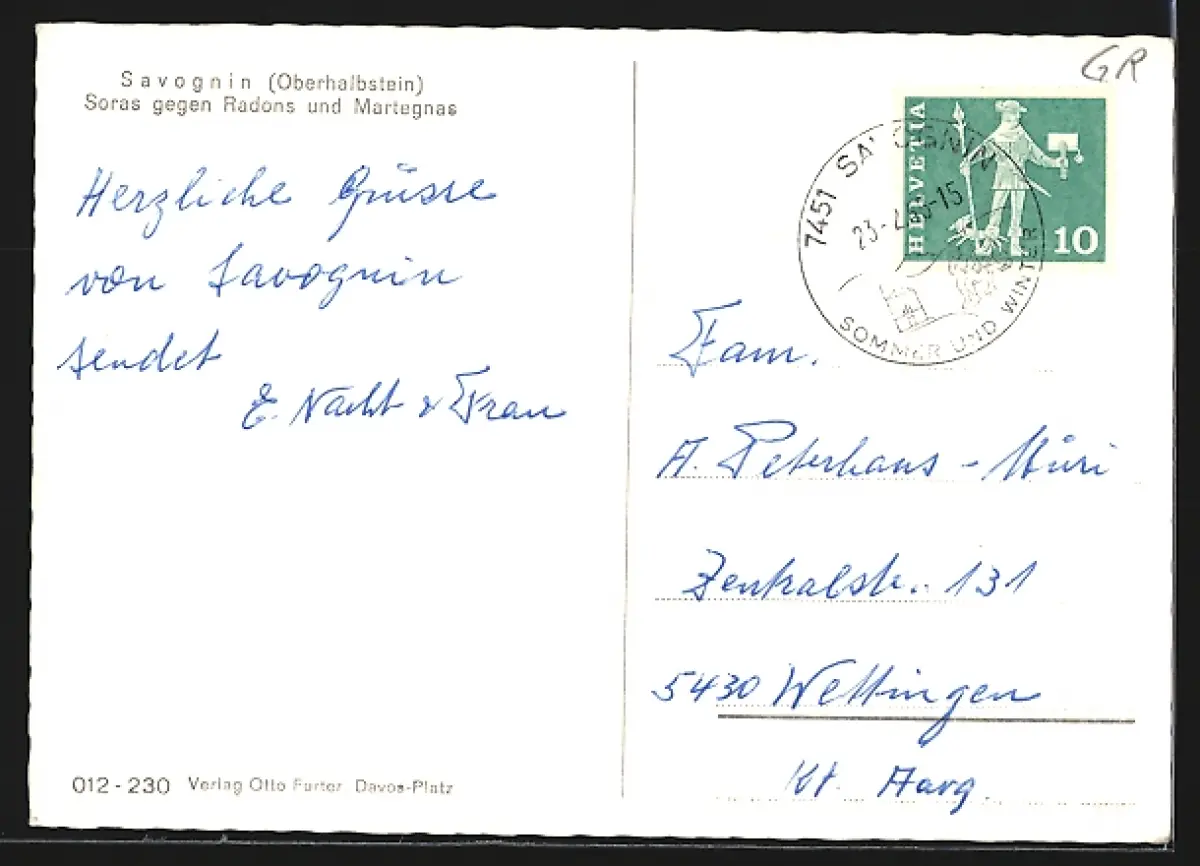 Savognin (Oberhalbstein)
Soras gegen Radons und Martegnas
Herzliche Grüsse
von Savognin
sendet
E. Nacht & Frau
012-230 Verlag Otto Furter Davos-Platz
GR
HELVETIA
10
7451 SAVOGNIN
SOMMER UND WINTER
Fam.
A. Peterhans - Müri
Zentralstr. 131
5430 Wettingen
Kt. Aarg.